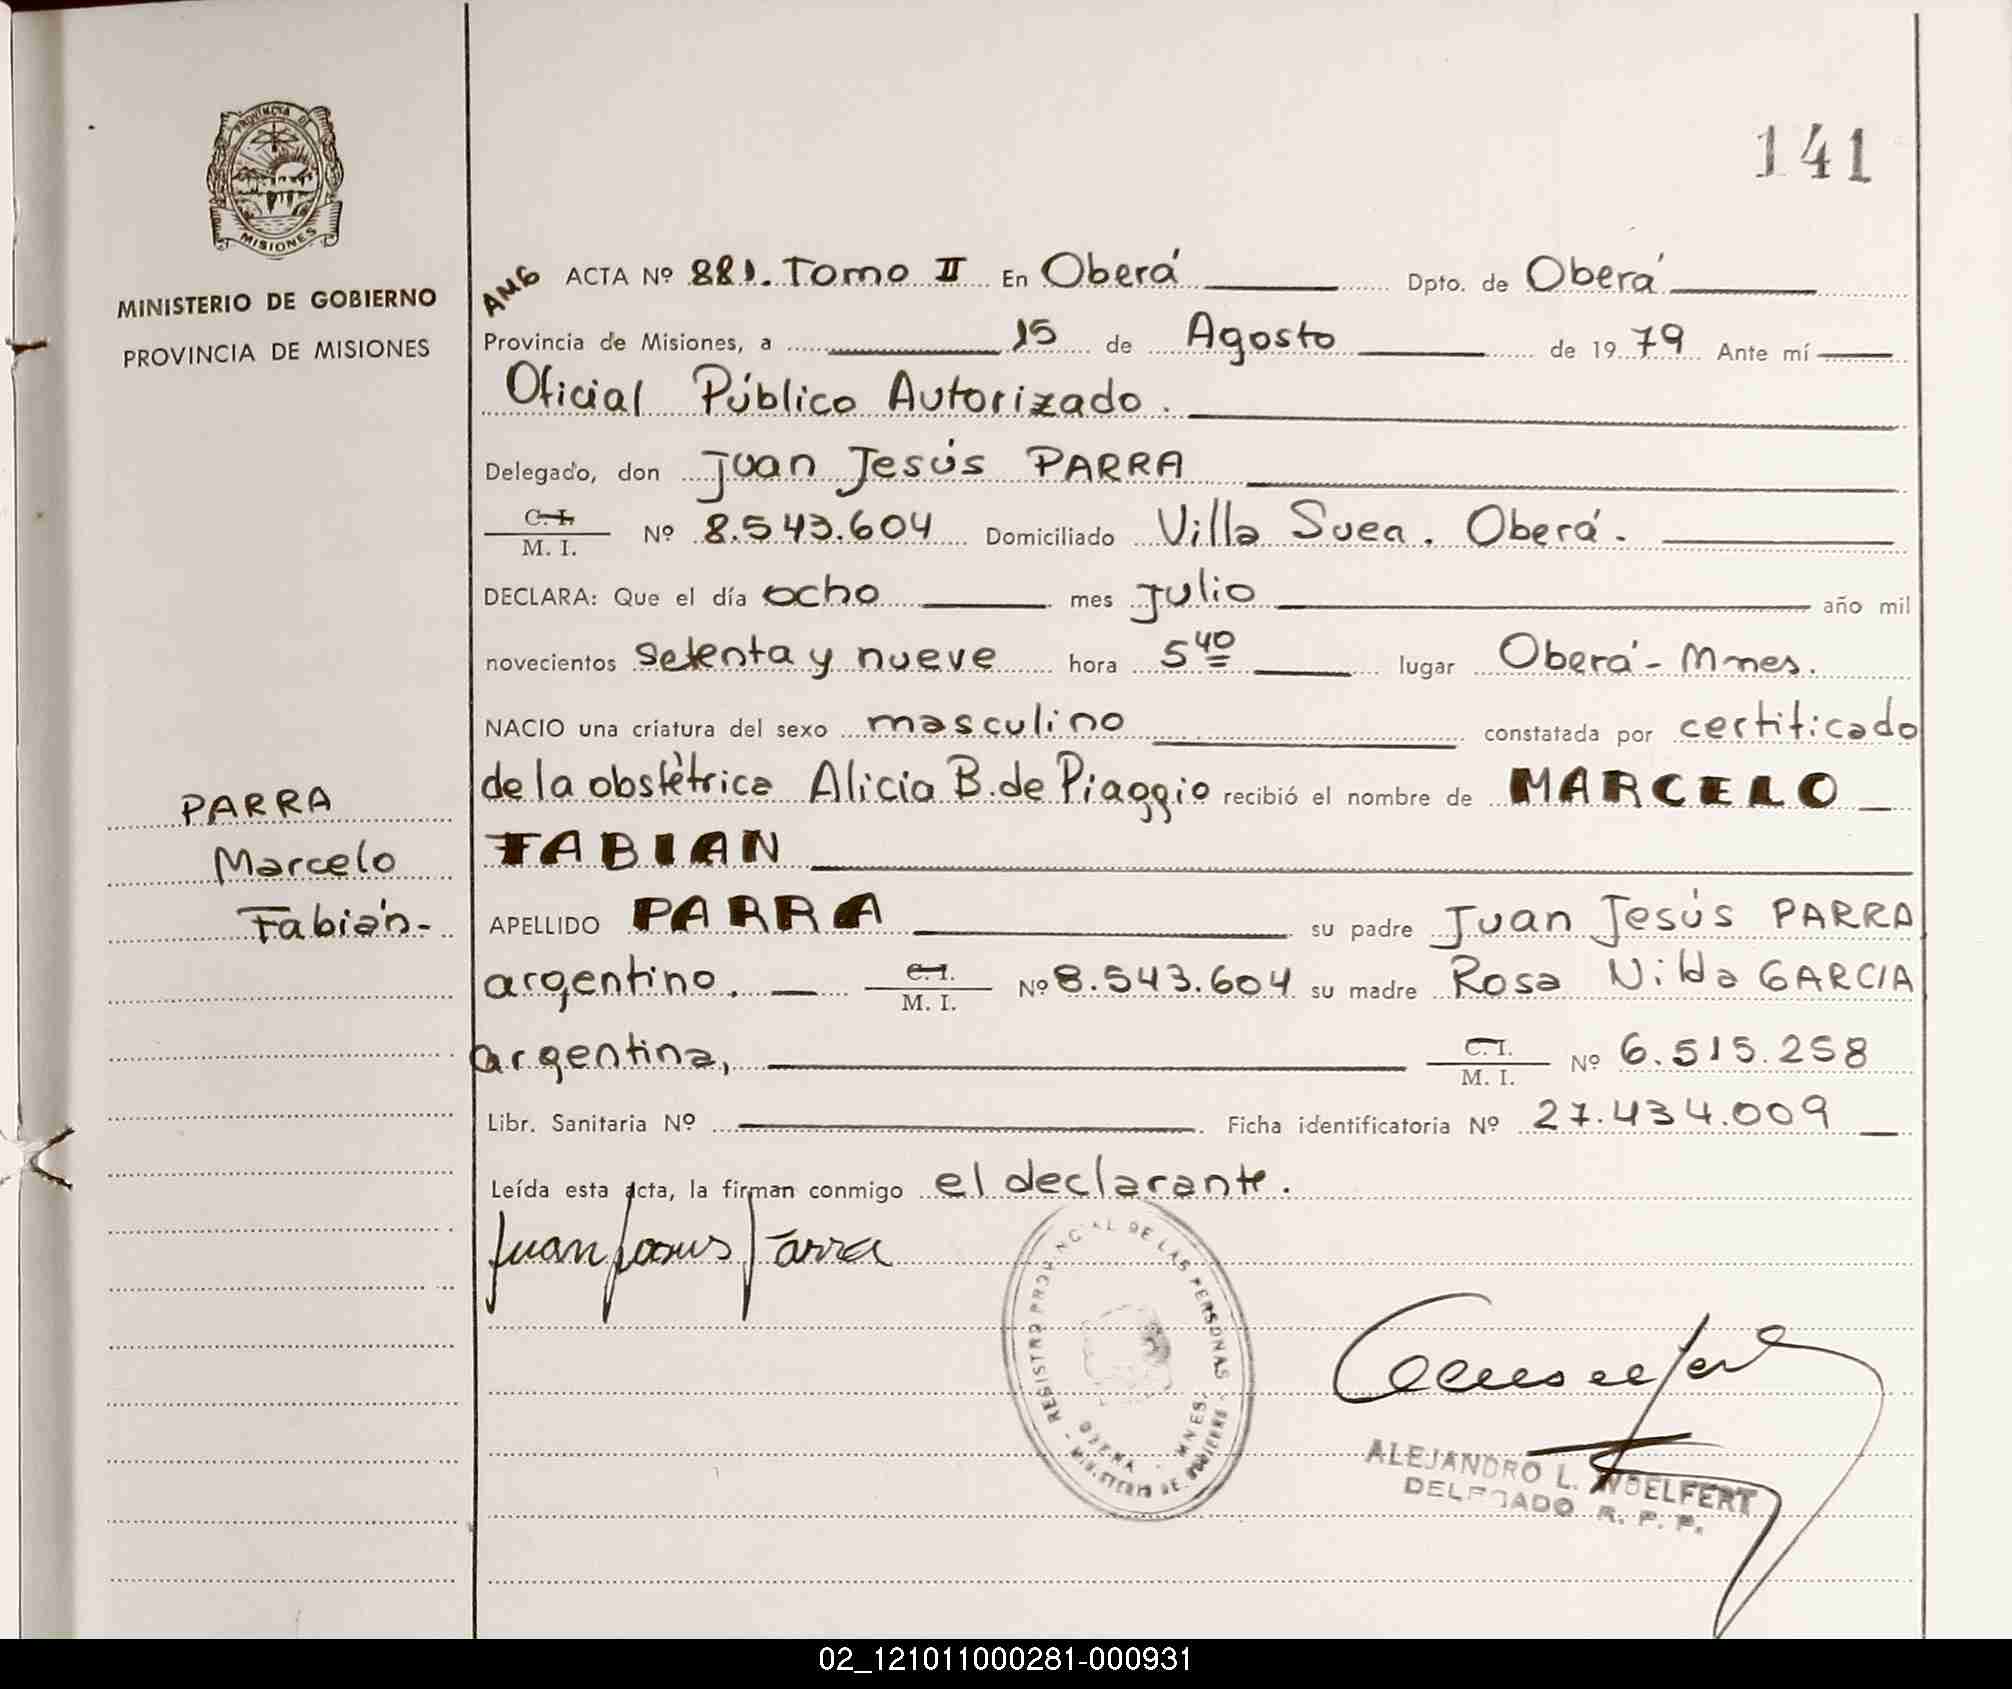 PROVINCIA DE
MISIONES
MINISTERIO DE GOBIERNO
PROVINCIA DE MISIONES
PARRA
Marcelo
Fabián-
141
AMG ACTA Nº 881. Tomo II En Oberá Dpto. de Oberá
Provincia de Misiones, a 15 de Agosto de 1979 Ante mí
Oficial Público Autorizado.
Delegado, don Juan Jesús PARRA
C. I.
M. I. Nº 8.543.604 Domiciliado Villa Svea. Oberá.
DECLARA: Que el día ocho mes julio año mil
novecientos setenta y nueve hora 5 40 lugar Oberá - Mnes.
NACIO una criatura del sexo masculino constatada por certificado
de la obstètrica Alicia B. de Piaggio recibió el nombre de MARCELO
FABIAN
APELLIDO PARRA su padre Juan Jesús PARRA
argentino. C. I. M. I. Nº 8.543.604 su madre Rosa Nilda GARCIA
argentina, C. I. M. I. Nº 6.515.258
Libr. Sanitaria Nº Ficha identificatoria Nº 27.434.009
Leída esta acta, la firman conmigo el declarante.
Juan Jesus Parra
REGISTRO PROVINCIAL DE LAS PERSONAS
OBERA - MNES.
MINISTERIO DE GOBIERNO
ALEJANDRO L. WOELFERT
DELEGADO R. P. P.
02_121011000281-000931